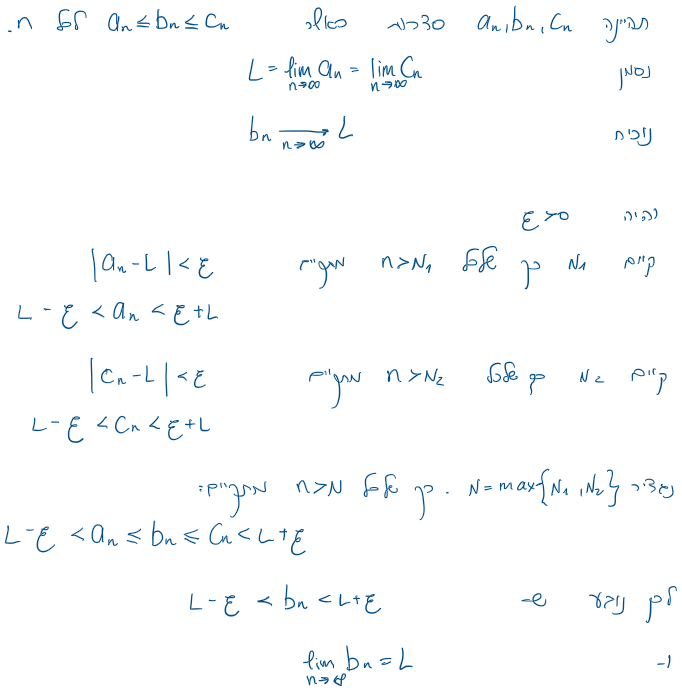 תהיינה aₙ, bₙ, cₙ סדרות כאלו aₙ ≤ bₙ ≤ cₙ לכל n.
נסמן L = lim_{n→∞} aₙ = lim_{n→∞} cₙ
נוכיח bₙ →_{n→∞} L
יהיה ε>0
קיים N₁ כך שלכל n>N₁ מתקיים |aₙ - L| < ε
L - ε < aₙ < ε + L
קיים N₂ כך שלכל n>N₂ מתקיים |cₙ - L| < ε
L - ε < cₙ < ε + L
נגדיר N = max{N₁, N₂}. כך שלכל n>N מתקיים:
L - ε < aₙ ≤ bₙ ≤ cₙ < L + ε
לכן נובע ש- L - ε < bₙ < L + ε
ו- lim_{n→∞} bₙ = L